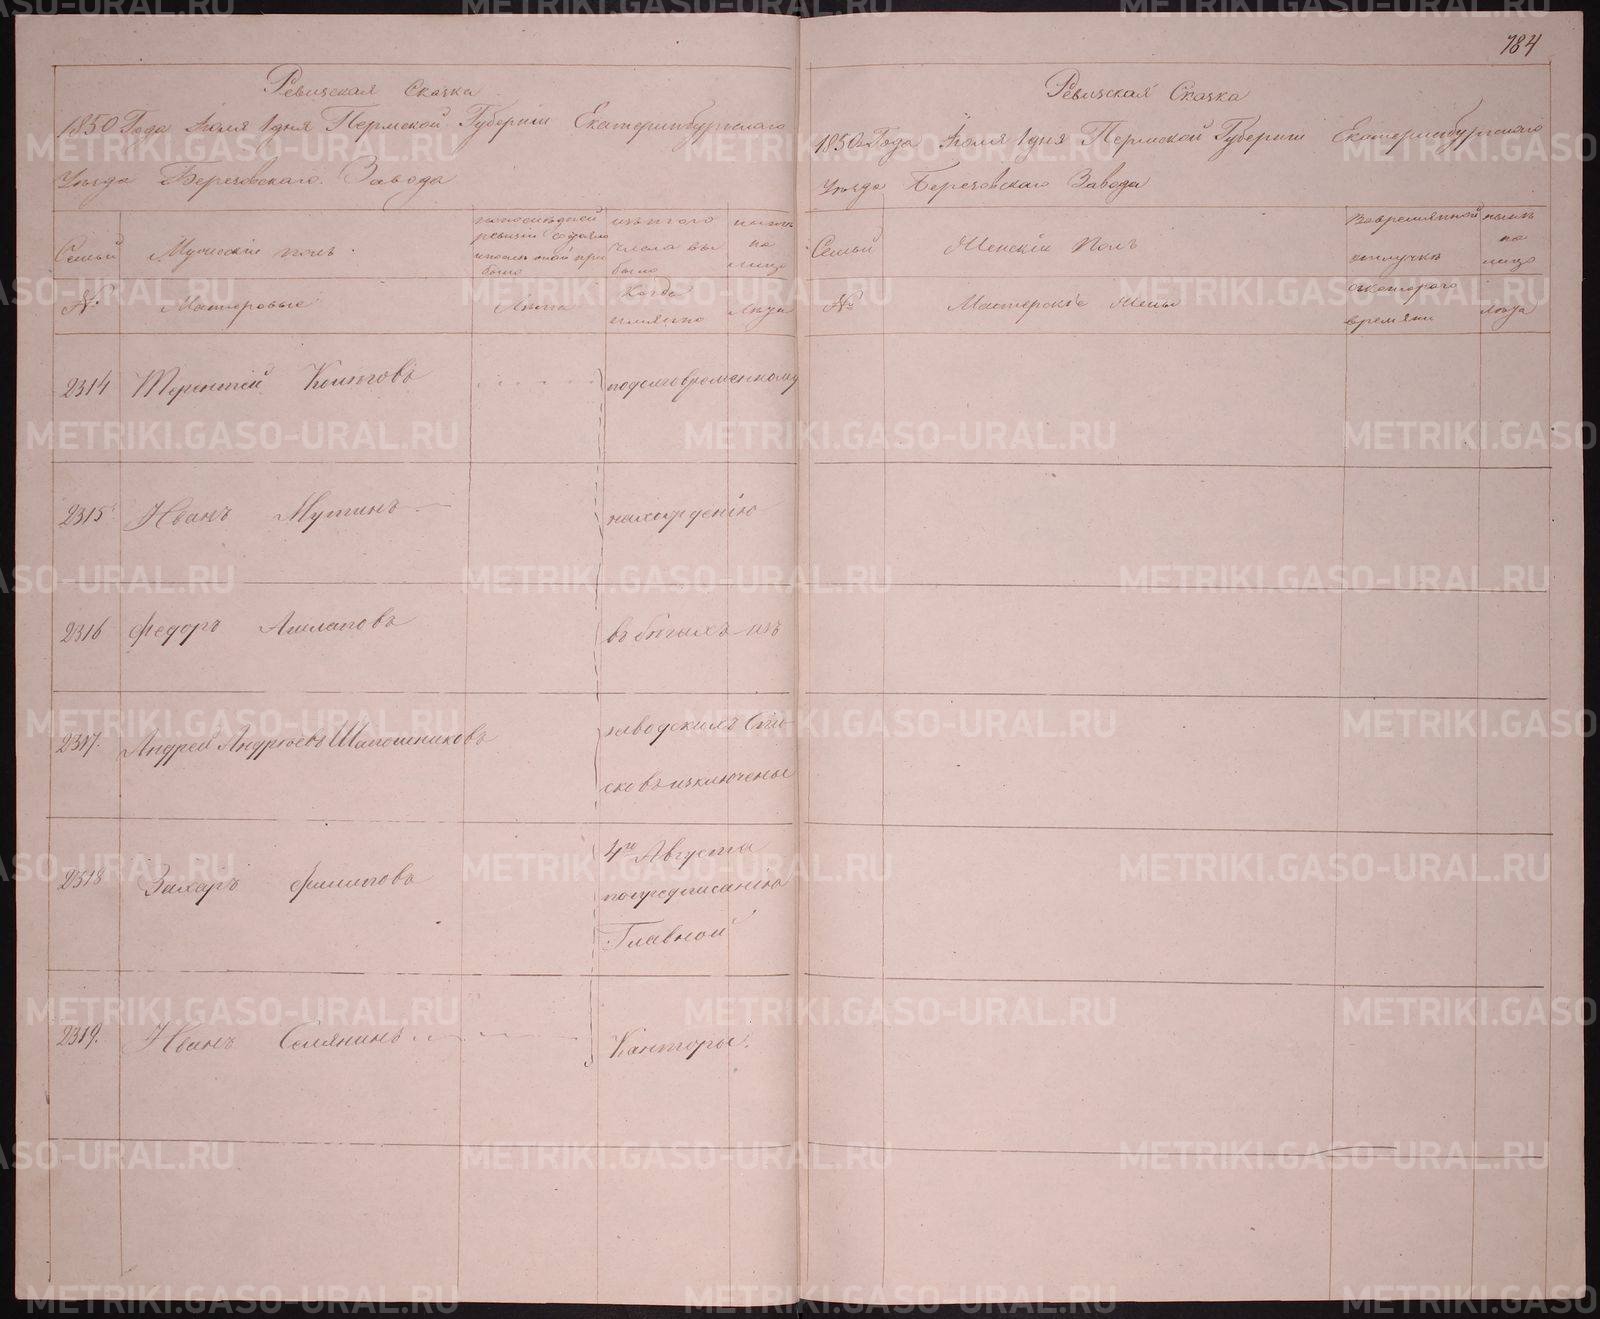 184
Ревизская Сказка
1850 Года Июля 1 дня Пермской Губерніи Екатеринбургскаго
Уѣзда Березовскаго Завода
Семьи
Мужескій полъ
По последней ревизіи состояло и после оной при было
изъ того числа вы было
ныне на лицо
№
Мастеровые
Лѣта
Когда именно
Лѣта
2314 Терентей
подолговременному
2315 Иванъ
нахожденію
2316 Федоръ
въ бѣгахъ изъ
2317. Андрей Андреевъ Шапошниковъ
заводскихъ Спи
сковъ изключены
2318 Захаръ Филиповъ
4го Августа
попредписанію
Главной
2319. Иванъ Селянинъ
Канторы.
Ревизская Сказка
1850 Года Июля 1 дня Пермской Губерніи Екатеринбургскаго
Уѣзда Березовскаго Завода
Семьи
Женскій Полъ
Во временной отлучкѣ
ныне на лицо
№
Мастерскіе Жены
с котораго времяни
Лѣта
METRIKI.GASO-URAL.RU